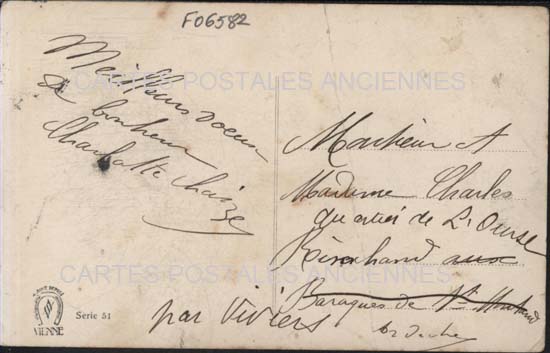 F06582
CARTES POSTALES ANCIENNES
Meilleurs voeux
de bonheur
Charlotte Chaize
Monsieur et
Madame Charles
quartier de L'Ourse
aux
Baraques de St Montand
par Viviers
Ardèche
CARTES POSTALES ANCIENNES
VIENNE
Serie 51